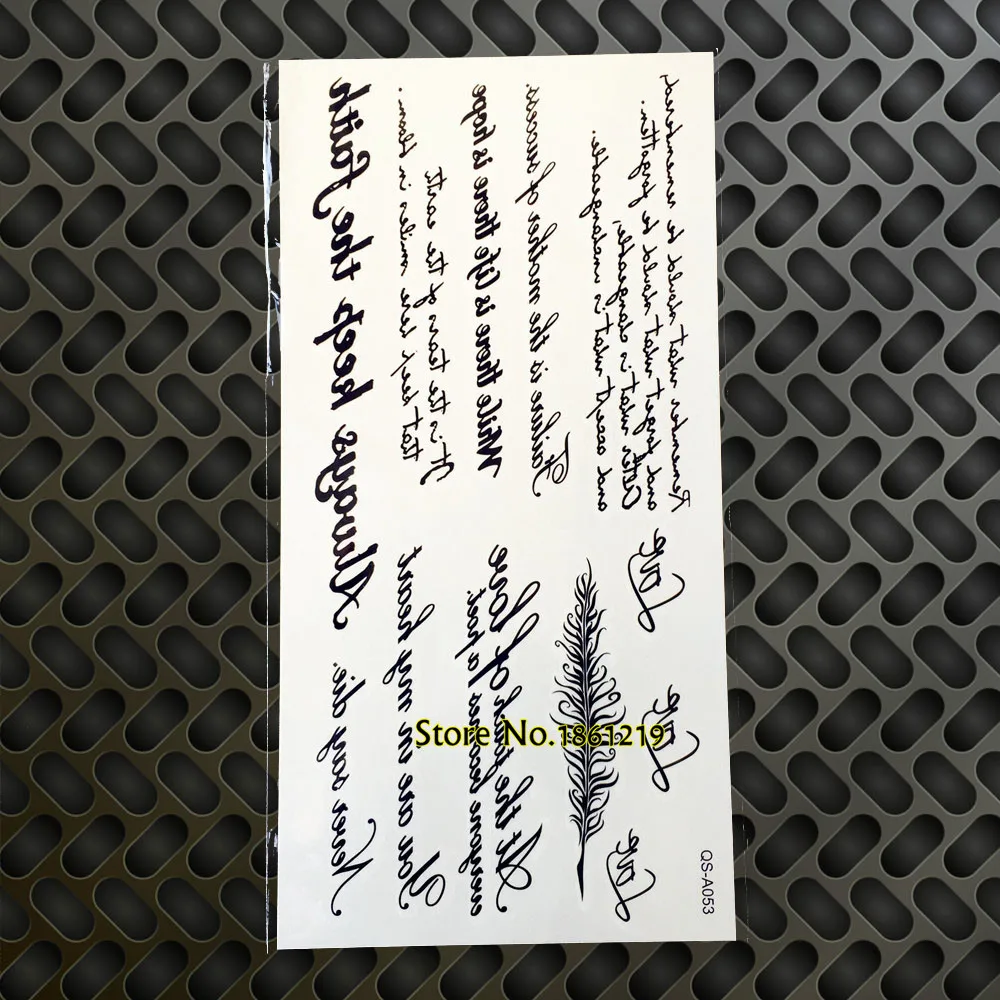 Always keep the Faith
It is the tears of the earth
that keeps her smiles in bloom.
While there is life there is hope
Failure is the mother of success.
Remember what should be remembered
and forget what should be forgotten.
Alter what is changeable,
and accept what is unchangeable.
Never say die.
You are in my heart
At the touch of love
everyone becomes a poet.
Love
Love
Love
QS-A053
Store No.1861219